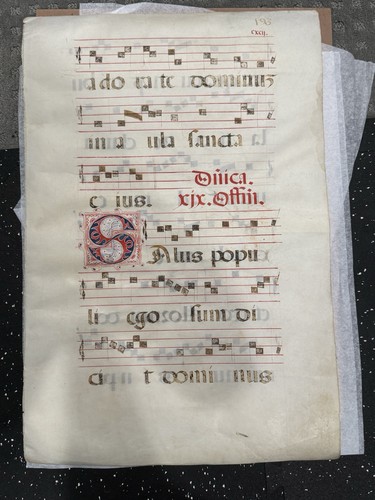 cxcij.
ado ra te dominuz
in a ula sancta
e ius. Dñica.
xjx. Offm.
Salus popu
li ego sum di
cit dominus